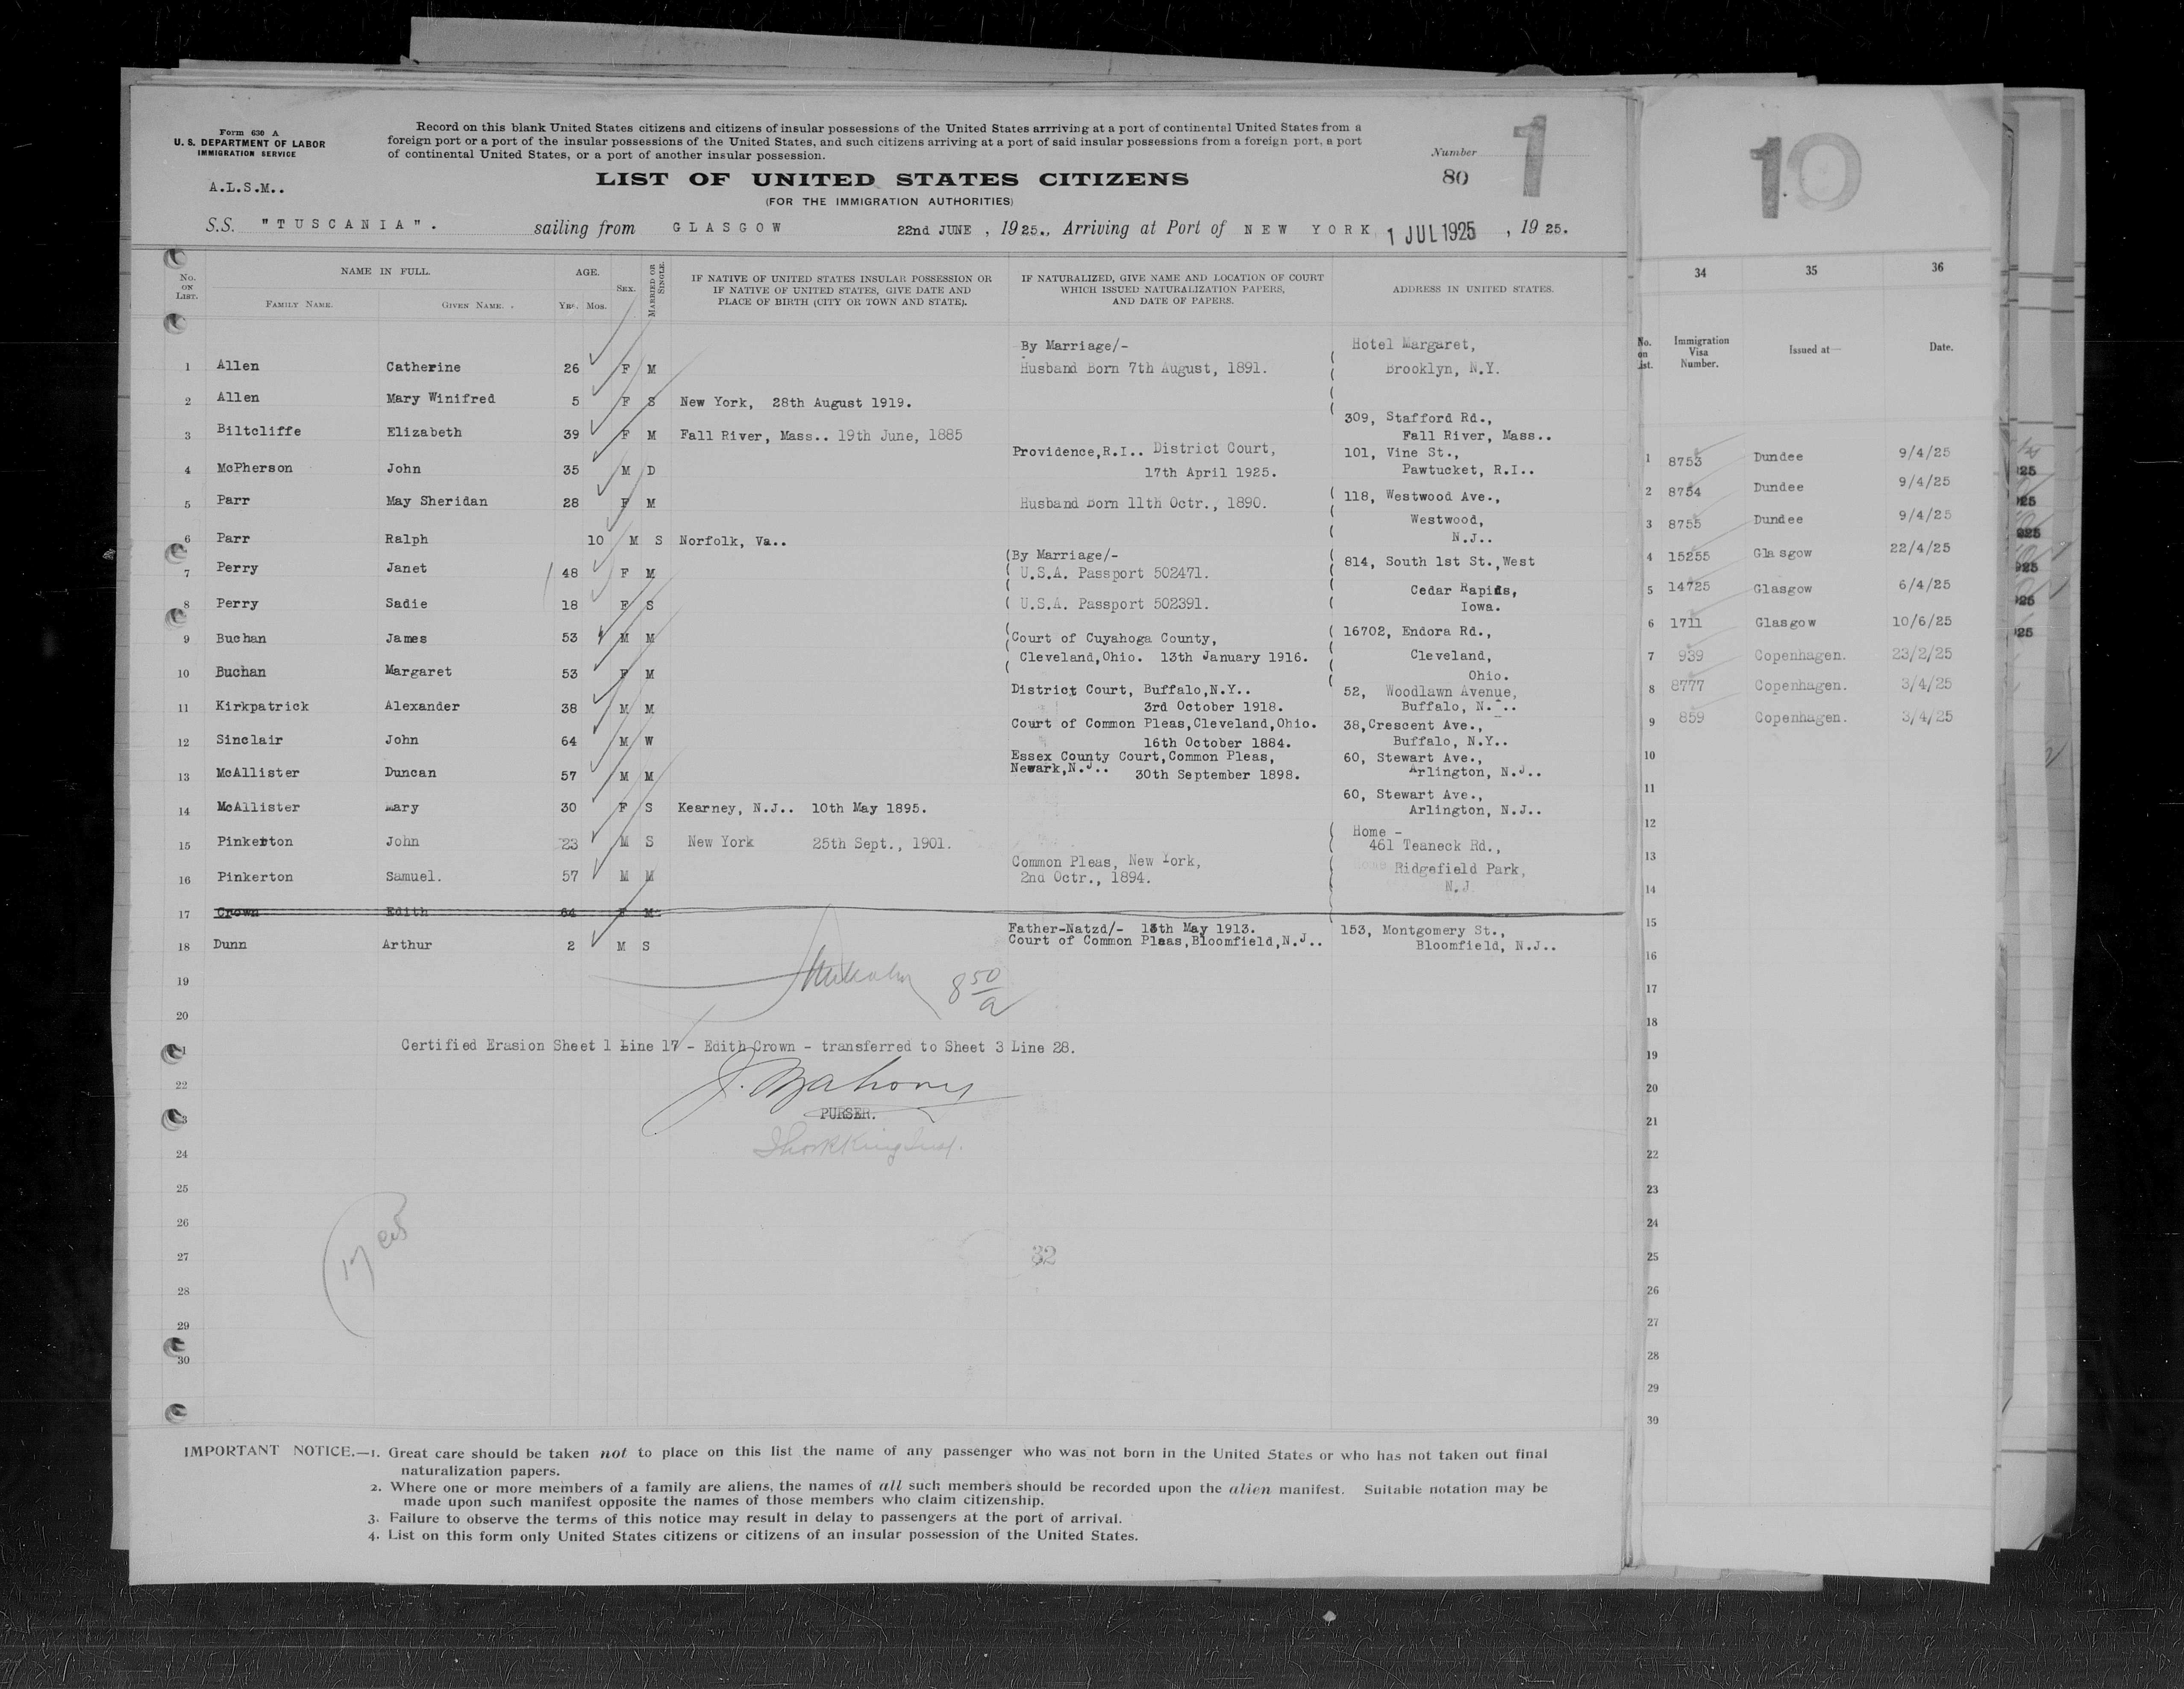 Form 630 A
U. S. DEPARTMENT OF LABOR
IMMIGRATION SERVICE
A.L.S.M..
Record on this blank United States citizens and citizens of insular possessions of the United States arrriving at a port of continental United States from a
foreign port or a port of the insular possessions of the United States, and such citizens arriving at a port of said insular possessions from a foreign port, a port
of continental United States, or a port of another insular possession.
Number
80
1
LIST OF UNITED STATES CITIZENS
(FOR THE IMMIGRATION AUTHORITIES)
S.S. "TUSCANIA". sailing from GLASGOW 22nd JUNE , 1925., Arriving at Port of NEW YORK 1 JUL 1925 , 1925.
No. on List. NAME IN FULL. AGE. SEX. MARRIED OR SINGLE. IF NATIVE OF UNITED STATES INSULAR POSSESSION OR IF NATIVE OF UNITED STATES, GIVE DATE AND PLACE OF BIRTH (CITY OR TOWN AND STATE). IF NATURALIZED, GIVE NAME AND LOCATION OF COURT WHICH ISSUED NATURALIZATION PAPERS, AND DATE OF PAPERS. ADDRESS IN UNITED STATES.
FAMILY NAME. GIVEN NAME. Yrs. Mos.
By Marriage/- Hotel Margaret,
1 Allen Catherine 26 F M Husband Born 7th August, 1891. Brooklyn, N.Y.
2 Allen Mary Winifred 5 F S New York, 28th August 1919.
309, Stafford Rd.,
3 Biltcliffe Elizabeth 39 F M Fall River, Mass.. 19th June, 1885 Fall River, Mass..
Providence,R.I.. District Court, 101, Vine St.,
4 McPherson John 35 M D 17th April 1925. Pawtucket, R.I..
5 Parr May Sheridan 28 F M Husband Born 11th Octr., 1890. 118, Westwood Ave.,
Westwood,
6 Parr Ralph 10 M S Norfolk, Va.. N.J..
(By Marriage/- 814, South 1st St.,West
7 Perry Janet 48 F M U.S.A. Passport 502471.
Cedar Rapids,
8 Perry Sadie 18 F S U.S.A. Passport 502391. Iowa.
9 Buchan James 53 M M Court of Cuyahoga County, 16702, Endora Rd.,
Cleveland,Ohio. 13th January 1916. Cleveland,
10 Buchan Margaret 53 F M Ohio.
District Court, Buffalo,N.Y.. 52, Woodlawn Avenue,
11 Kirkpatrick Alexander 38 M M 3rd October 1918. Buffalo, N.Y..
Court of Common Pleas,Cleveland,Ohio. 38,Crescent Ave.,
12 Sinclair John 64 M W 16th October 1884. Buffalo, N.Y..
Essex County Court,Common Pleas, 60, Stewart Ave.,
13 McAllister Duncan 57 M M Newark,N.J.. 30th September 1898. Arlington, N.J..
60, Stewart Ave.,
14 McAllister Mary 30 F S Kearney, N.J.. 10th May 1895. Arlington, N.J..
Home -
15 Pinkerton John 23 M S New York 25th Sept., 1901. 461 Teaneck Rd.,
Common Pleas, New York, Ridgefield Park,
16 Pinkerton Samuel. 57 M M 2nd Octr., 1894. N.J
17 Crown Edith 64 F M
Father-Natzd/- 13th May 1913. 153, Montgomery St.,
18 Dunn Arthur 2 M S Court of Common Pleas,Bloomfield,N.J.. Bloomfield, N.J..
19
8 50/a
20
Certified Erasion Sheet 1 Line 17 - Edith Crown - transferred to Sheet 3 Line 28.
22
J. Mahony
PURSER.
24
25
26
27
32
28
29
30
IMPORTANT NOTICE.—1. Great care should be taken not to place on this list the name of any passenger who was not born in the United States or who has not taken out final
naturalization papers.
2. Where one or more members of a family are aliens, the names of all such members should be recorded upon the alien manifest. Suitable notation may be
made upon such manifest opposite the names of those members who claim citizenship.
3. Failure to observe the terms of this notice may result in delay to passengers at the port of arrival.
4. List on this form only United States citizens or citizens of an insular possession of the United States.
10
34 35 36
No. on List. Immigration Visa Number. Issued at— Date.
1 8753 Dundee 9/4/25
2 8754 Dundee 9/4/25
3 8755 Dundee 9/4/25
4 15255 Glasgow 22/4/25
5 14725 Glasgow 6/4/25
6 1711 Glasgow 10/6/25
7 939 Copenhagen. 23/2/25
8 8777 Copenhagen. 3/4/25
9 859 Copenhagen. 3/4/25
10
11
12
13
14
15
16
17
18
19
20
21
22
23
24
25
26
27
28
29
30